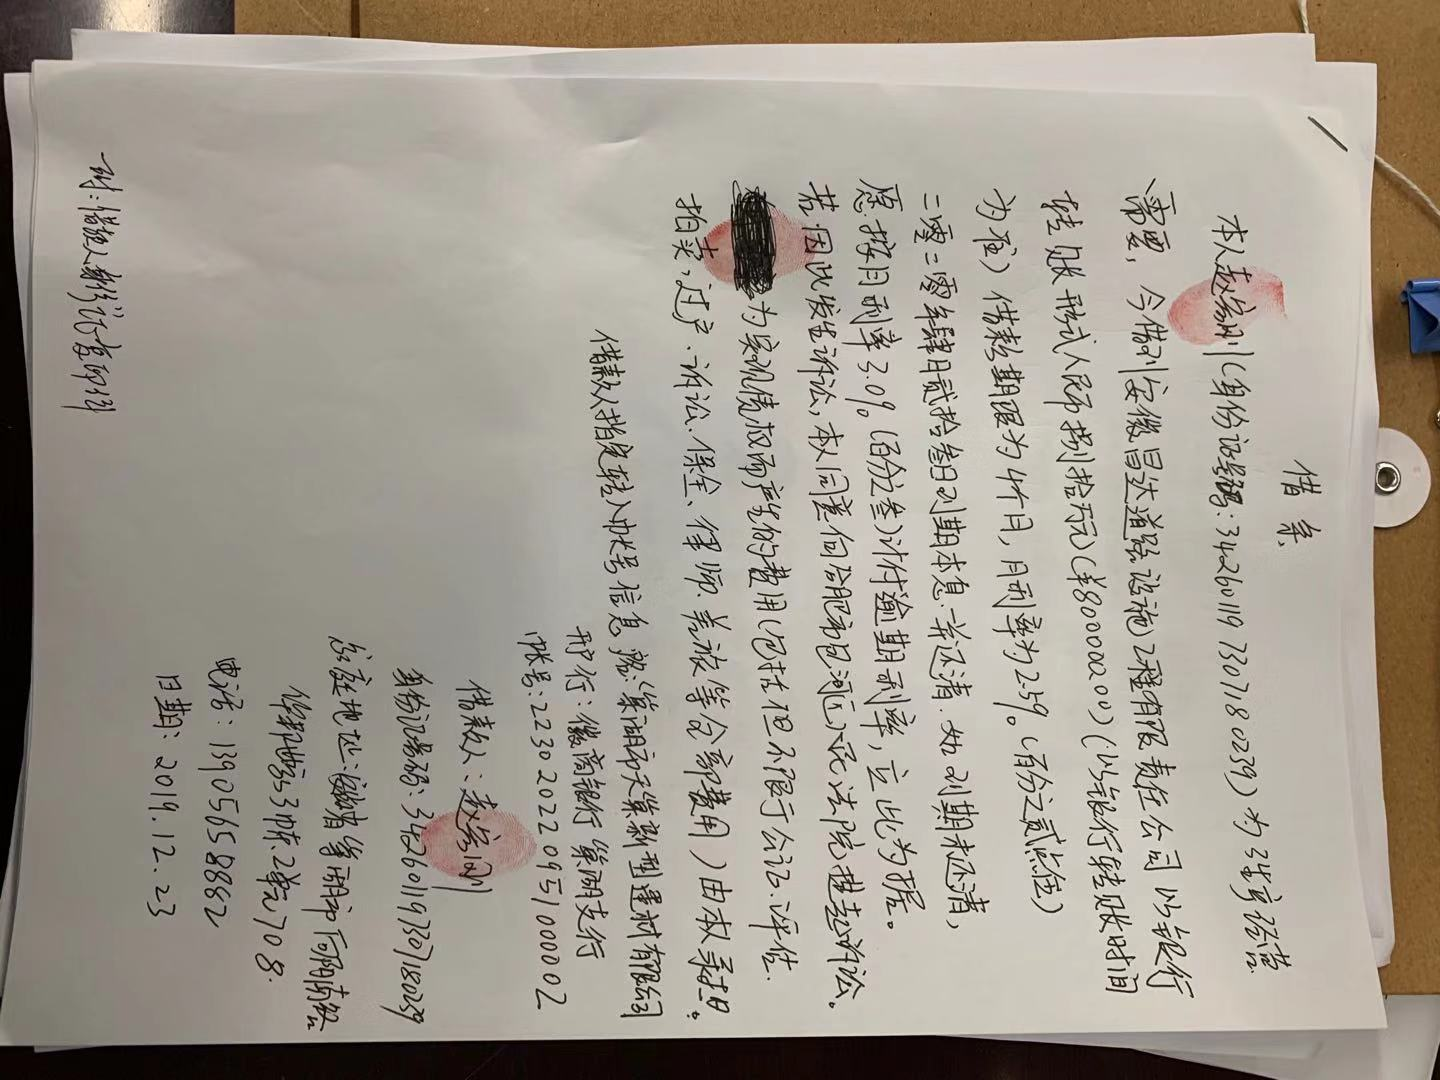 借条
本人赵家刚(身份证号码:342601197307180239)为生产经营
需要,今借到安徽昌达道路设施工程有限责任公司以银行
转账形式人民币捌拾万元(¥800000.00)(以银行转账时间
为准)借款期限为4个月,月利率为2.5%(百分之贰点伍)
二零二零年肆月贰拾叁日到期本息一并还清.如到期未还清,
愿按月利率3.0%(百分之叁)计付逾期利率,立此为据。
若因此发生诉讼,本人同意向合肥市包河区人民法院提起诉讼。
为实现债权而产生的费用(包括但不限于公证、评估.
拍卖、过户、诉讼、保全、律师、差旅等全部费用)由本人承担。
借款人指定转入帐号信息 户名:巢湖市天巢新型建材有限公司
开户行:徽商银行巢湖支行
帐号:2230202209510000002
借款人:赵家刚
身份证号码:342601197307180239
家庭地址:安徽省巢湖市向阳南路
3幢2单元708.
电话:13905658882
日期:2019.12.23
附:借款人身份证复印件